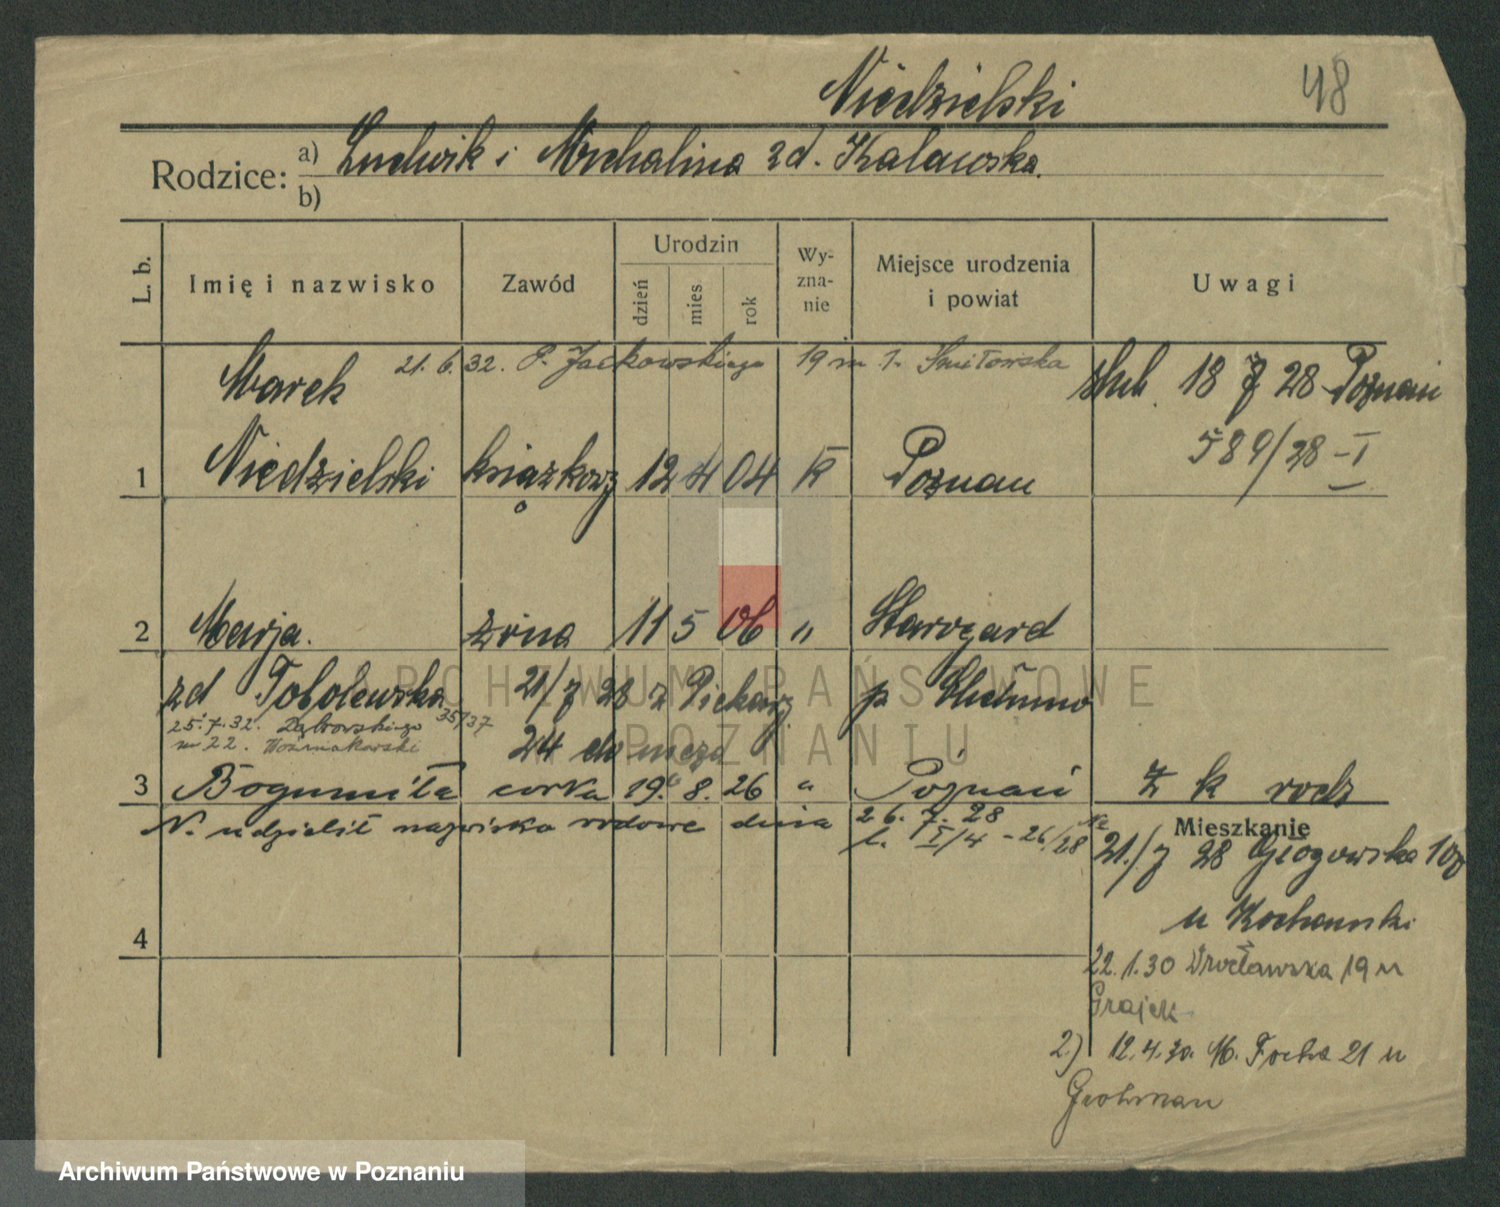 Niedzielski
48
Rodzice: a) Ludwik i Michalina zd. Kalawska.
b)
L. b. Imię i nazwisko Zawód Urodzin dzień mies. rok Wyznanie Miejsce urodzenia i powiat Uwagi
21. 6. 32. P. Jackowskiego 19 m 1. Smitowska
Marek 18 7 28 Poznań
589/28 - I
1 Niedzielski książkowy 12 4 04 k Poznań
2 Marja. żona 11 5 06 " Starogard
zd Tobolewska 21/7 28 z Piekary p
25.7.32. Dąbrowskiego 35/37 24 do męża
m 22. Woźniakowski
3 Bogumiła córka 19. 8. 26 " Poznań z k rodz
N. udzielił nazwiska rodowe dnia 26. 7. 28
I/4 - 26/28
Mieszkanie
21./7 28 Głogowska
u Kochanski
4
22. 1. 30 Wrocławska 19 u
Grajek
2) 12. 4. 30. M. Focha 21 u
Grohman
ARCHIWUM PAŃSTWOWE
W POZNANIU
Archiwum Państwowe w Poznaniu